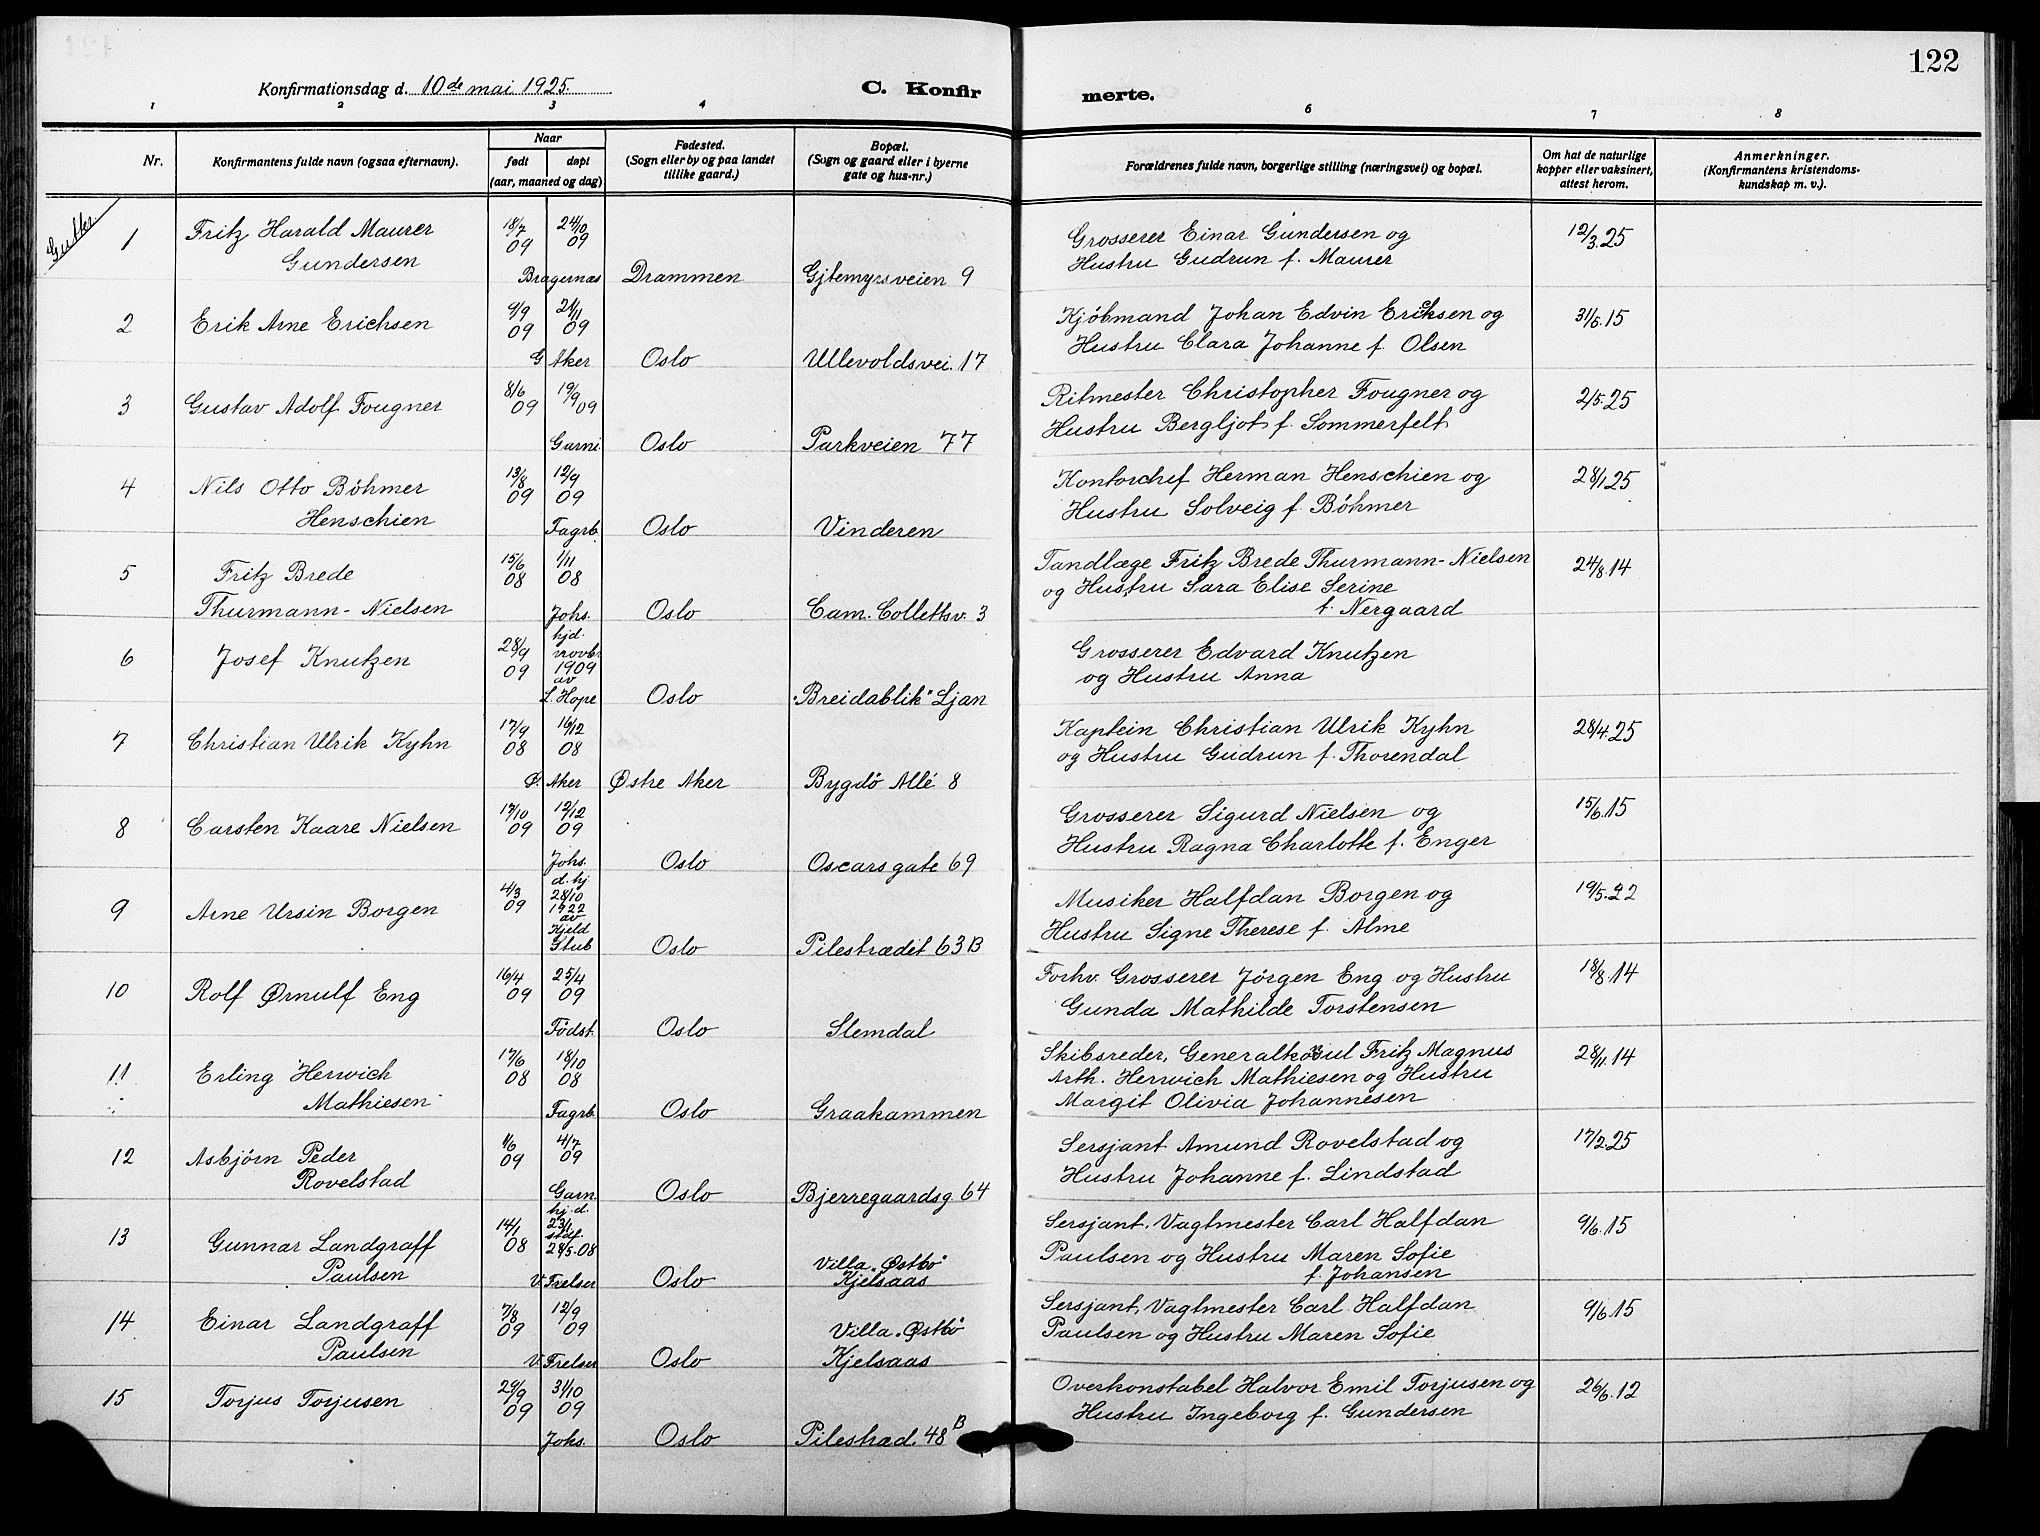 122
Konfirmationsdag d. 10de mai 1925.
C. Konfirmerte.
1 2 3 4 6 7 8
Nr.
Konfirmantens fulde navn (ogsaa efternavn).
Naar
født døpt
(aar, maaned og dag)
Fødested.
(Sogn eller by og paa landet
tillike gaard.)
Bopæl.
(Sogn og gaard eller i byerne
gate og hus-nr.)
Forældrenes fulde navn, borgerlige stilling (næringsvei) og bopæl.
Om hat de naturlige
kopper eller vaksinert,
attest herom.
Anmerkninger.
(Konfirmantens kristendoms-
kundskap m. v.).
Gutter.
1 Fritz Harald Maurer 18/7 24/10 Grosserer Einar Gundersen og 12/3.25
Gundersen 09 09 Hustru Gudrun f. Maurer
Bragernæs Drammen Gjtemyrsveien 9
2 Erik Arne Erichsen 9/9 21/11 Kjøbmand Johan Edvin Erichsen og 31/5.15
09 09 Hustru Clara Johanne f. Olsen
G Aker Oslo Ullevoldsvei. 17
3 Gustav Adolf Fougner 8/6 19/9 Ritmester Christopher Fougner og 2/5.25
09 09 Hustru Bergljot f. Sommerfelt
Garni. Oslo Parkveien 77
4 Nils Otto Bøhmer 13/8 12/9 Kontorchef Herman Henschien og 28/1.25
Henschien 09 09 Hustru Solveig f. Bøhmer
Fagrb. Oslo Vinderen
5 Fritz Brede 15/6 1/11 Tandlæge Fritz Brede Thurmann-Nielsen 24/8.14
Thurmann-Nielsen 08 08 og Hustru Sara Elise Serine
f. Nergaard
Johs. Oslo Cam. Collettsv. 3
6 Josef Knutzen 28/9 hjd. Grosserer Edvard Knutzen
09 1909 og Hustru Anna
av
L. Hope Oslo "Breidablik" Ljan
7 Christian Ulrik Kyhn 17/9 16/12 Kaptein Christian Ulrik Kyhn 28/4.25
08 08 og Hustru Gudrun f. Thorendal
Ø. Aker Østre Aker Bygdø Allé 8
8 Carsten Kaare Nielsen 17/10 12/12 Grosserer Sigurd Nielsen og 15/6.15
09 09 Hustru Ragna Charlotte f. Enger
Johs. Oslo Oscarsgate 69
9 Arne Ursin Borgen 4/3 d. hj Musiker Halfdan Borgen og 19/5.22
09 28/10 Hustru Signe Therese f. Alme
1922
av
Kjeld
Stub Oslo Pilestrædet 63B
10 Rolf Ørnulf Eng 16/4 25/4 Forhv. Grosserer Jørgen Eng og Hustru 18/8.14
09 09 Gunda Mathilde Torstensen
Fødst. Oslo Slemdal
11 Erling Herwich 17/6 18/10 Skibsreder, Generalkonsul Fritz Magnus 28/11.14
Mathiesen 08 08 Arth. Herwich Mathiesen og Hustru
Margit Olivia Johannesen
Fagrb. Oslo Graakammen
12 Asbjørn Peder 1/6 4/7 Sersjant Amund Rovelstad og 17/2.25
Rovelstad 09 09 Hustru Johanne f. Lindstad
Garn. Oslo Bjerregaardsg. 64
13 Gunnar Landgraff 14/1 hj. d. Sersjant, Vagtmester Carl Halfdan 9/6.15
Paulsen 08 23/1 Paulsen og Hustru Maren Sofie
stdf. f. Johansen
28/5.08 Villa "Østbø"
V. Frelser Oslo Kjelsaas
14 Einar Landgraff 7/8 12/9 Sersjant, Vagtmester Carl Halfdan 9/6.15
Paulsen 09 09 Paulsen og Hustru Maren Sofie
Villa "Østbø"
V. Frelser Oslo Kjelsaas
15 Torjus Torjusen 29/9 31/10 Overkonstabel Halvor Emil Torjusen og 26/6.12
09 09 Hustru Ingeborg f. Gundersen
Johs. Oslo Pilestræd. 48B